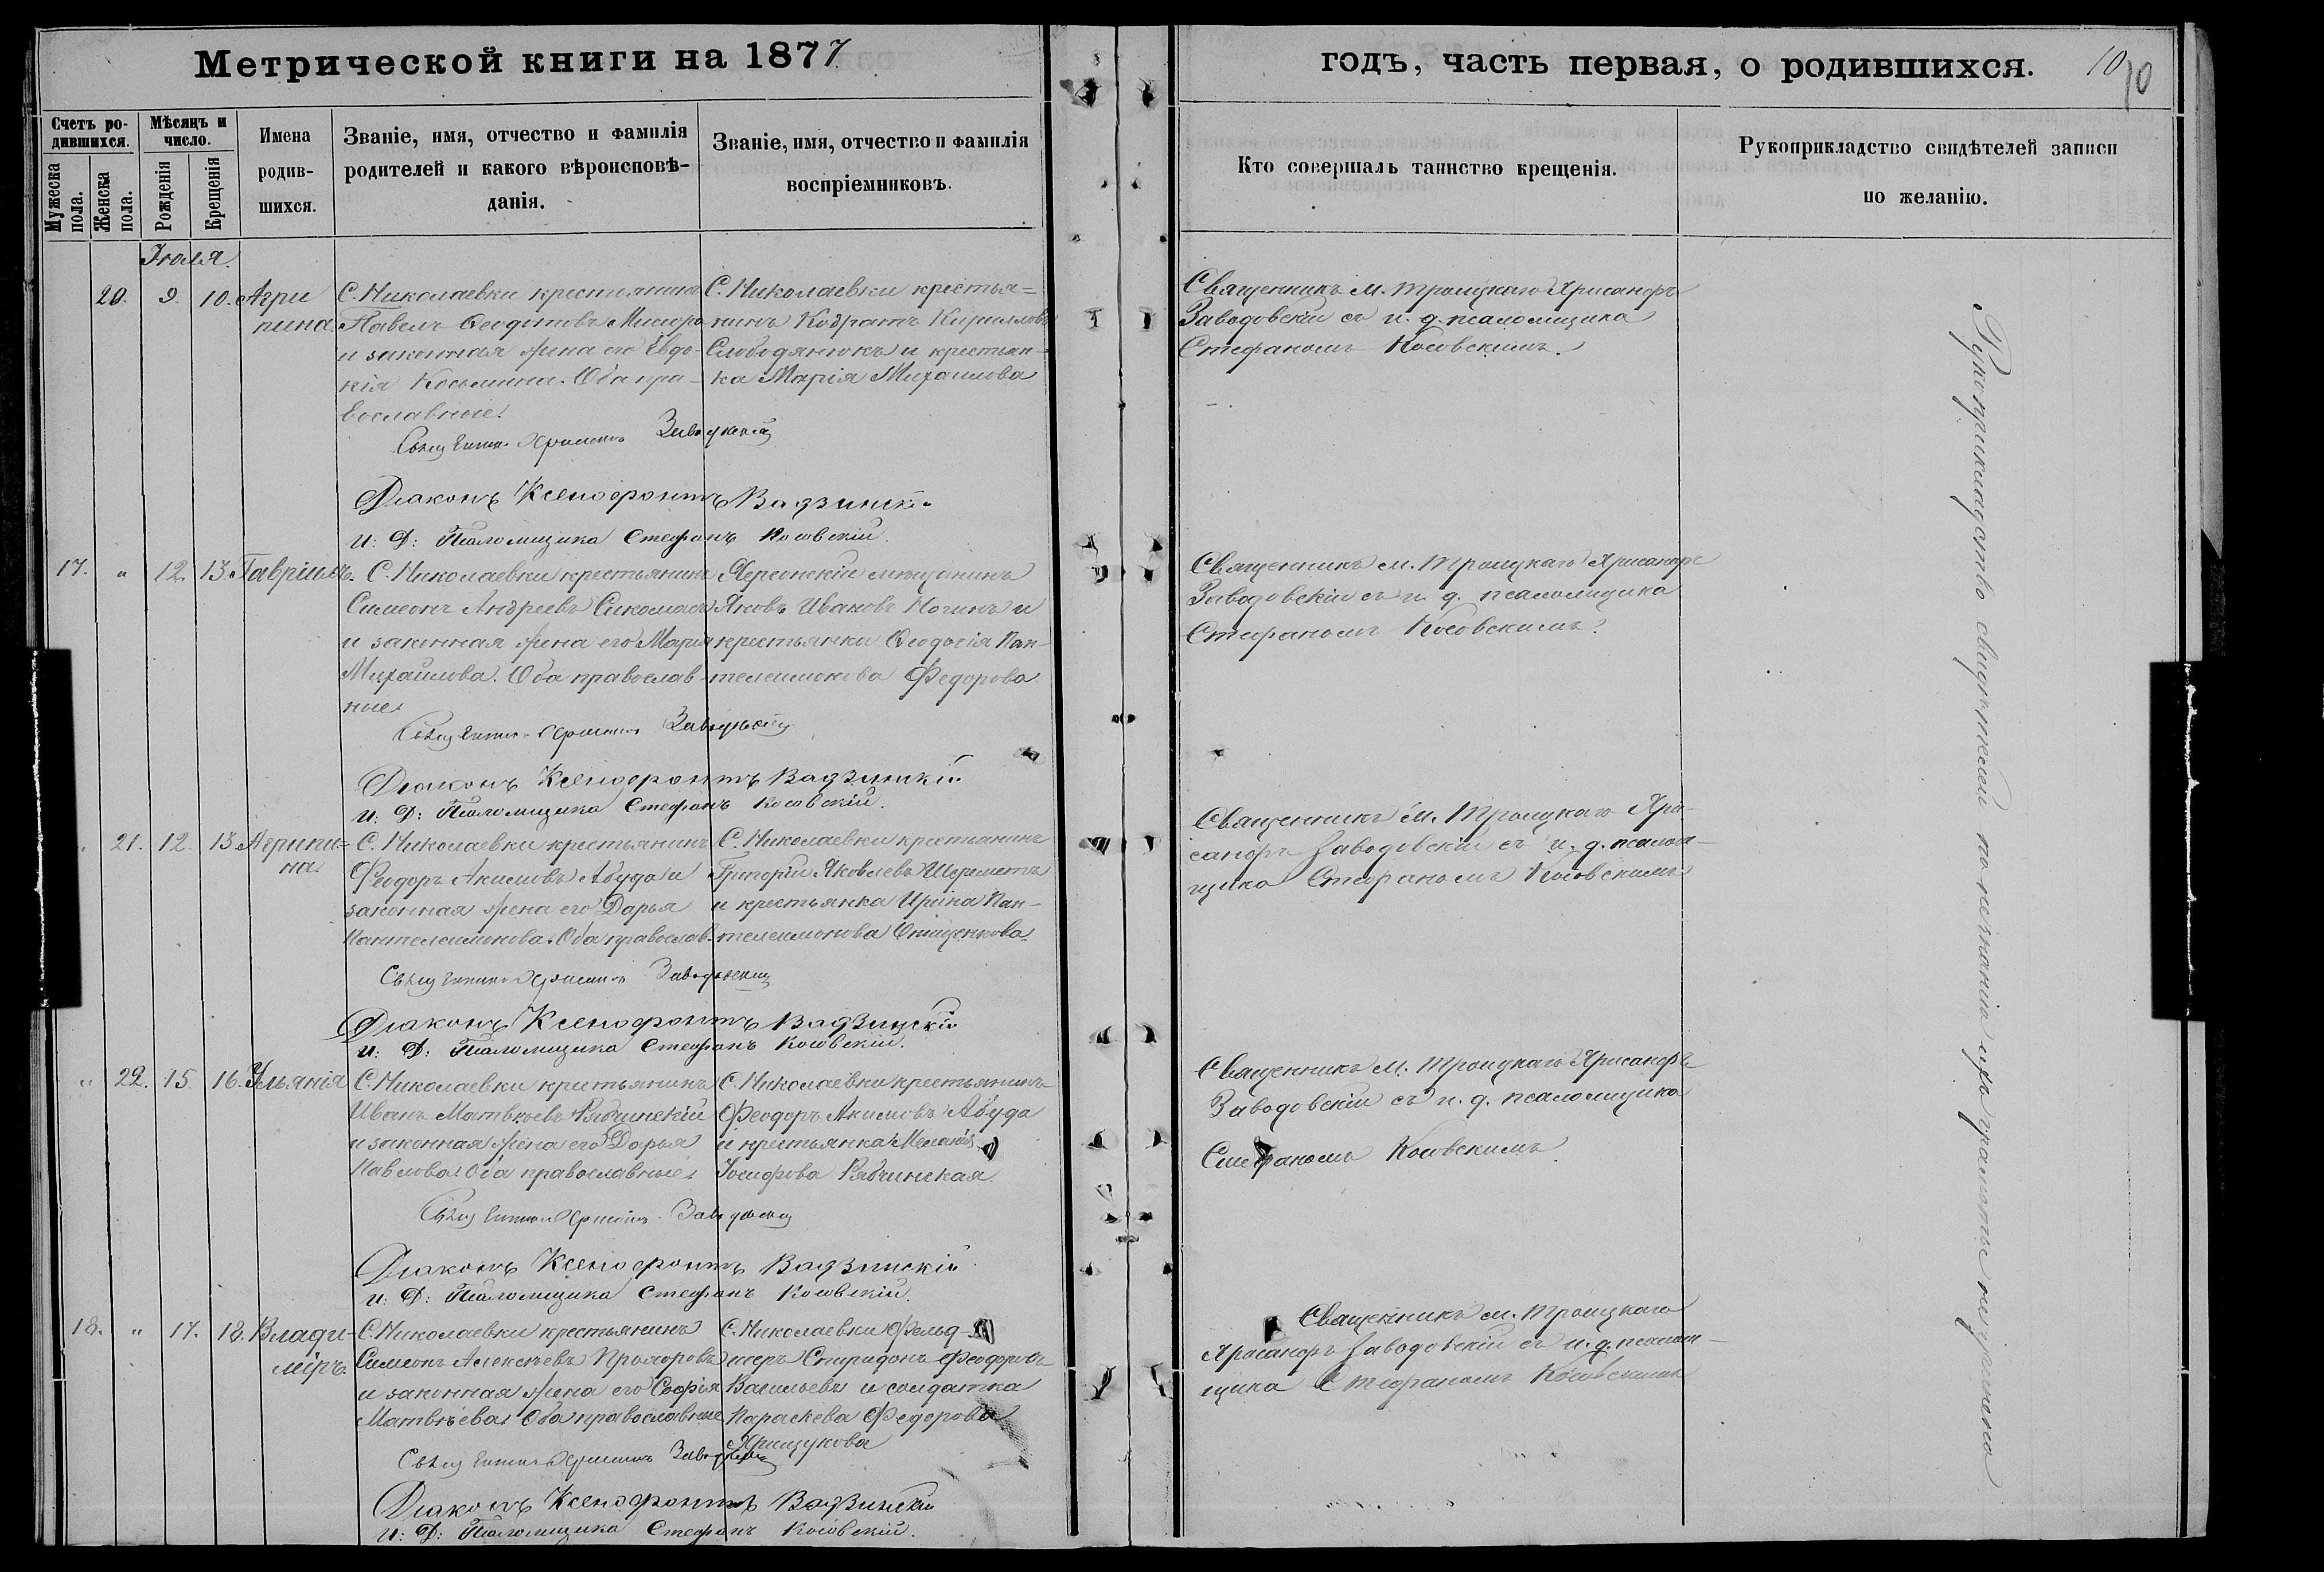 Метрической книги на 1877
годъ, часть первая, о родившихся. 10
10
Счетъ ро-
дившихся.
Мужеска
пола.
Женска
пола.
Мѣсяцъ и
число.
Рожденія
Крещенія
Имена
родив-
шихся.
Званіе, имя, отчество и фамилія
родителей и какого вѣроисповѣ-
данія.
Званіе, имя, отчество и фамилія
воспріемниковъ.
Кто совершалъ таинство крещенія.
Рукоприкладство свидѣтелей записи
по желанію.
Іюля.
20. 9. 10. Агри
пина
С. Николаевки крестьянинъ
Павелъ Ѳеодотовъ
и законная жена его Евдо-
кія Косьмина. Оба пра-
вославные.
С. Николаевки крестья=
нинъ Кодратъ Кирилловъ
Слободянюкъ и крестьян-
ка Марія Михаилова
Священникъ м. Троицкаго Хрисанфъ
Заводовскій съ и. д. псаломщика
Стефаномъ Косовскимъ.
Священникъ Хрисанфъ Заводовскій
Діаконъ Ксенофонтъ Вадзинскій
и: Д: Псаломщика Стефанъ Косовскій.
17. " 12. 13. Гавріилъ.
С. Николаевки крестьянинъ
Симеонъ Андреевъ
и законная жена его Марія
Михаилова. Оба православ-
ные.
Херсонскій мѣщанинъ
Яковъ Ивановъ и
крестьянка Ѳеодосія Пан-
телеимонова Федорова.
Священникъ м. Троицкаго Хрисанфъ
Заводовскій съ и. д. псаломщика
Стефаномъ Косовскимъ.
Священникъ Хрисанфъ Заводовскій
Діаконъ Ксенофонтъ Вадзинскій
и: Д: Псаломщика Стефанъ Косовскій.
" 21. 12. 13. Агрипи-
на.
С. Николаевки крестьянинъ
Феодоръ Акимовъ Абуда и
законная жена его Дарья
Пантелеимонова. Оба православ.
С. Николаевки крестьянинъ
Григорій Яковлевъ Шереметъ
и крестьянка Ирина Пан-
телеимонова Онищенкова.
Священникъ м. Троицкаго Хри-
санфъ Заводовскій съ и. д. псалом-
щика Стефаномъ Косовскимъ
Священникъ Хрисанфъ Заводовскій
Діаконъ Ксенофонтъ Вадзинскій
и: Д: Псаломщика Стефанъ Косовскій.
" 22. 15. 16. Ульянія
С. Николаевки крестьянинъ
Иванъ Матвѣевъ Рябчинскій
и законная жена его Дарья
Павлова. Оба православные.
С. Николаевки крестьянинъ
Феодоръ Акимовъ Абуда
и крестьянка Меланія
Іосифова Рябчинская.
Священникъ м. Троицкаго Хрисанфъ
Заводовскій съ и. д. псаломщика
Стефаномъ Косовскимъ.
Священникъ Хрисанфъ Заводовскій
Діаконъ Ксенофонтъ Вадзинскій
и: Д: Псаломщика Стефанъ Косовскій.
18. " 17. 18. Влади-
міръ.
С. Николаевки крестьянинъ
Симеонъ Алексѣевъ Прохоровъ
и законная жена его Софія
Матвѣева. Оба православные
С. Николаевки Фельд-
шеръ Спиридонъ Феодоровъ
Васильевъ и солдатка
Параскева Федорова
Хрищукова
Священникъ м. Троицкаго
Хрисанфъ Заводовскій съ и. д. псалом-
щика Стефаномъ Косовскимъ
Священникъ Хрисанфъ Заводовскій
Діаконъ Ксенофонтъ Вадзинскій
и: Д: Псаломщика Стефанъ Косовскій.
Рукоприкладство свидѣтелей по незнанію ихъ грамоты не учинено